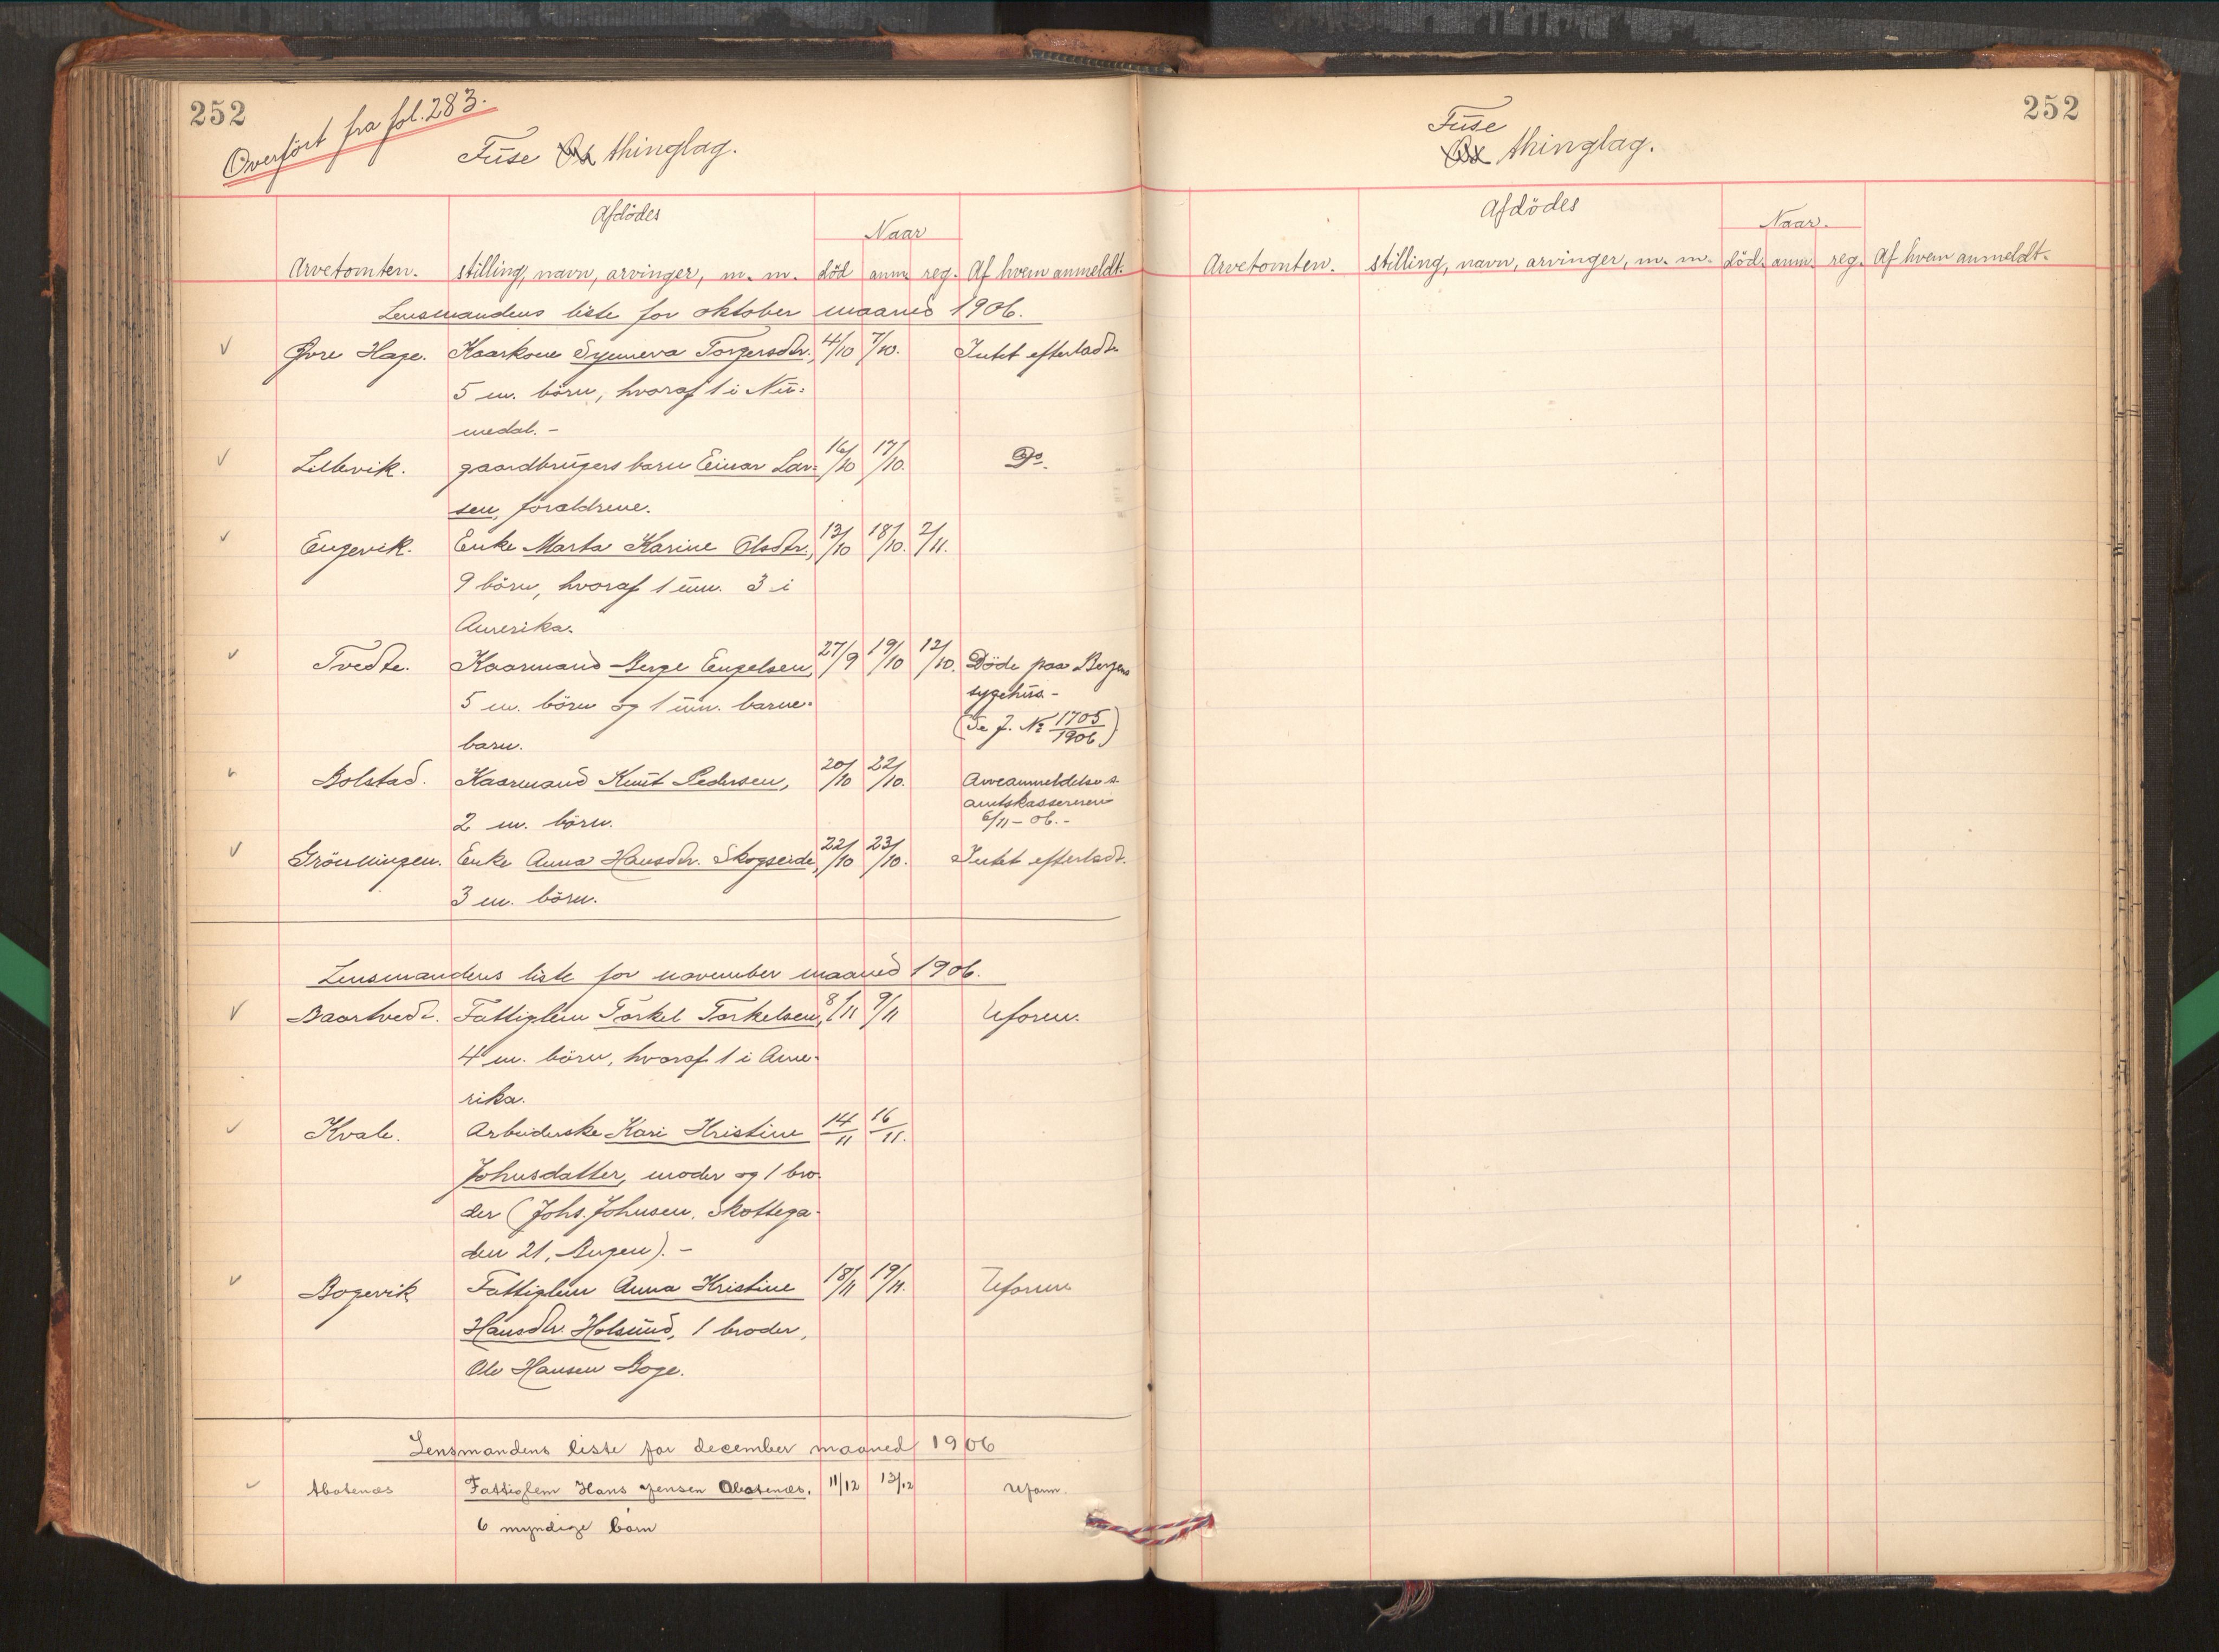 252
Overført fra fol. 283.
Fuse Os thinglag.
Afdödes
Naar
Arvetomten. stilling, navn, arvinger, m. m. död anm. reg. Af hvem anmeldt.
Lensmandens liste for oktober maaned 1906.
Övre Hage. Kaarkone Synneva Torgersdtr., 4/10 7/10. Intet efterladt.
5 m. börn, hvoraf 1 i Nu-
medal. -
Lillevik. gaardbrugers barn Einar Lar- 16/10 17/10. Do.
sen, forældrene.
Engevik. Enke Marta Karine Olsdtr., 13/10 18/10. 2/11.
9 börn, hvoraf 1 um. 3 i
Amerika.
Tvedte. Kaarmand Berge Engelsen, 27/9 19/10 12/10. Döde paa Bergens
sygehus. -
5 m. börn og 1 um. barne-
(Se J. No 1705/1906)
barn.
Bolstad. Kaarmand Knut Pedersen, 20/10 22/10. Arveanmeldelse s.
amtskassereren
2 m. börn. 6/11-06. -
Grönningen. Enke Anna Hansdtr. Skogseide, 22/10 23/10. Intet efterladt.
3 m. börn.
Lensmandens liste for november maaned 1906.
Baartvedt. Fattiglem Torkel Torkelsen, 8/11 9/11 Uform.
4 m. börn, hvoraf 1 i Ame-
rika.
Kvale. Arbeiderske Kari Kristine 14/11 16/11.
Johnsdatter, moder og 1 bro-
der (Johs. Johnsen, Skottega-
den 21, Bergen). -
Bogevik Fattiglem Anna Kristine 18/11 19/11. Uform
Hansdtr. Holsund, 1 broder,
Ole Hansen Boge.
Lensmandens liste for december maaned 1906
Abotenæs Fattiglem Hans Jensen Abotenæs. 11/12 13/12 Uform.
6 myndige börn
252
Fuse
Os thinglag.
Afdödes
Naar.
Arvetomten. stilling, navn, arvinger, m. m. död. anm. reg. Af hvem anmeldt.